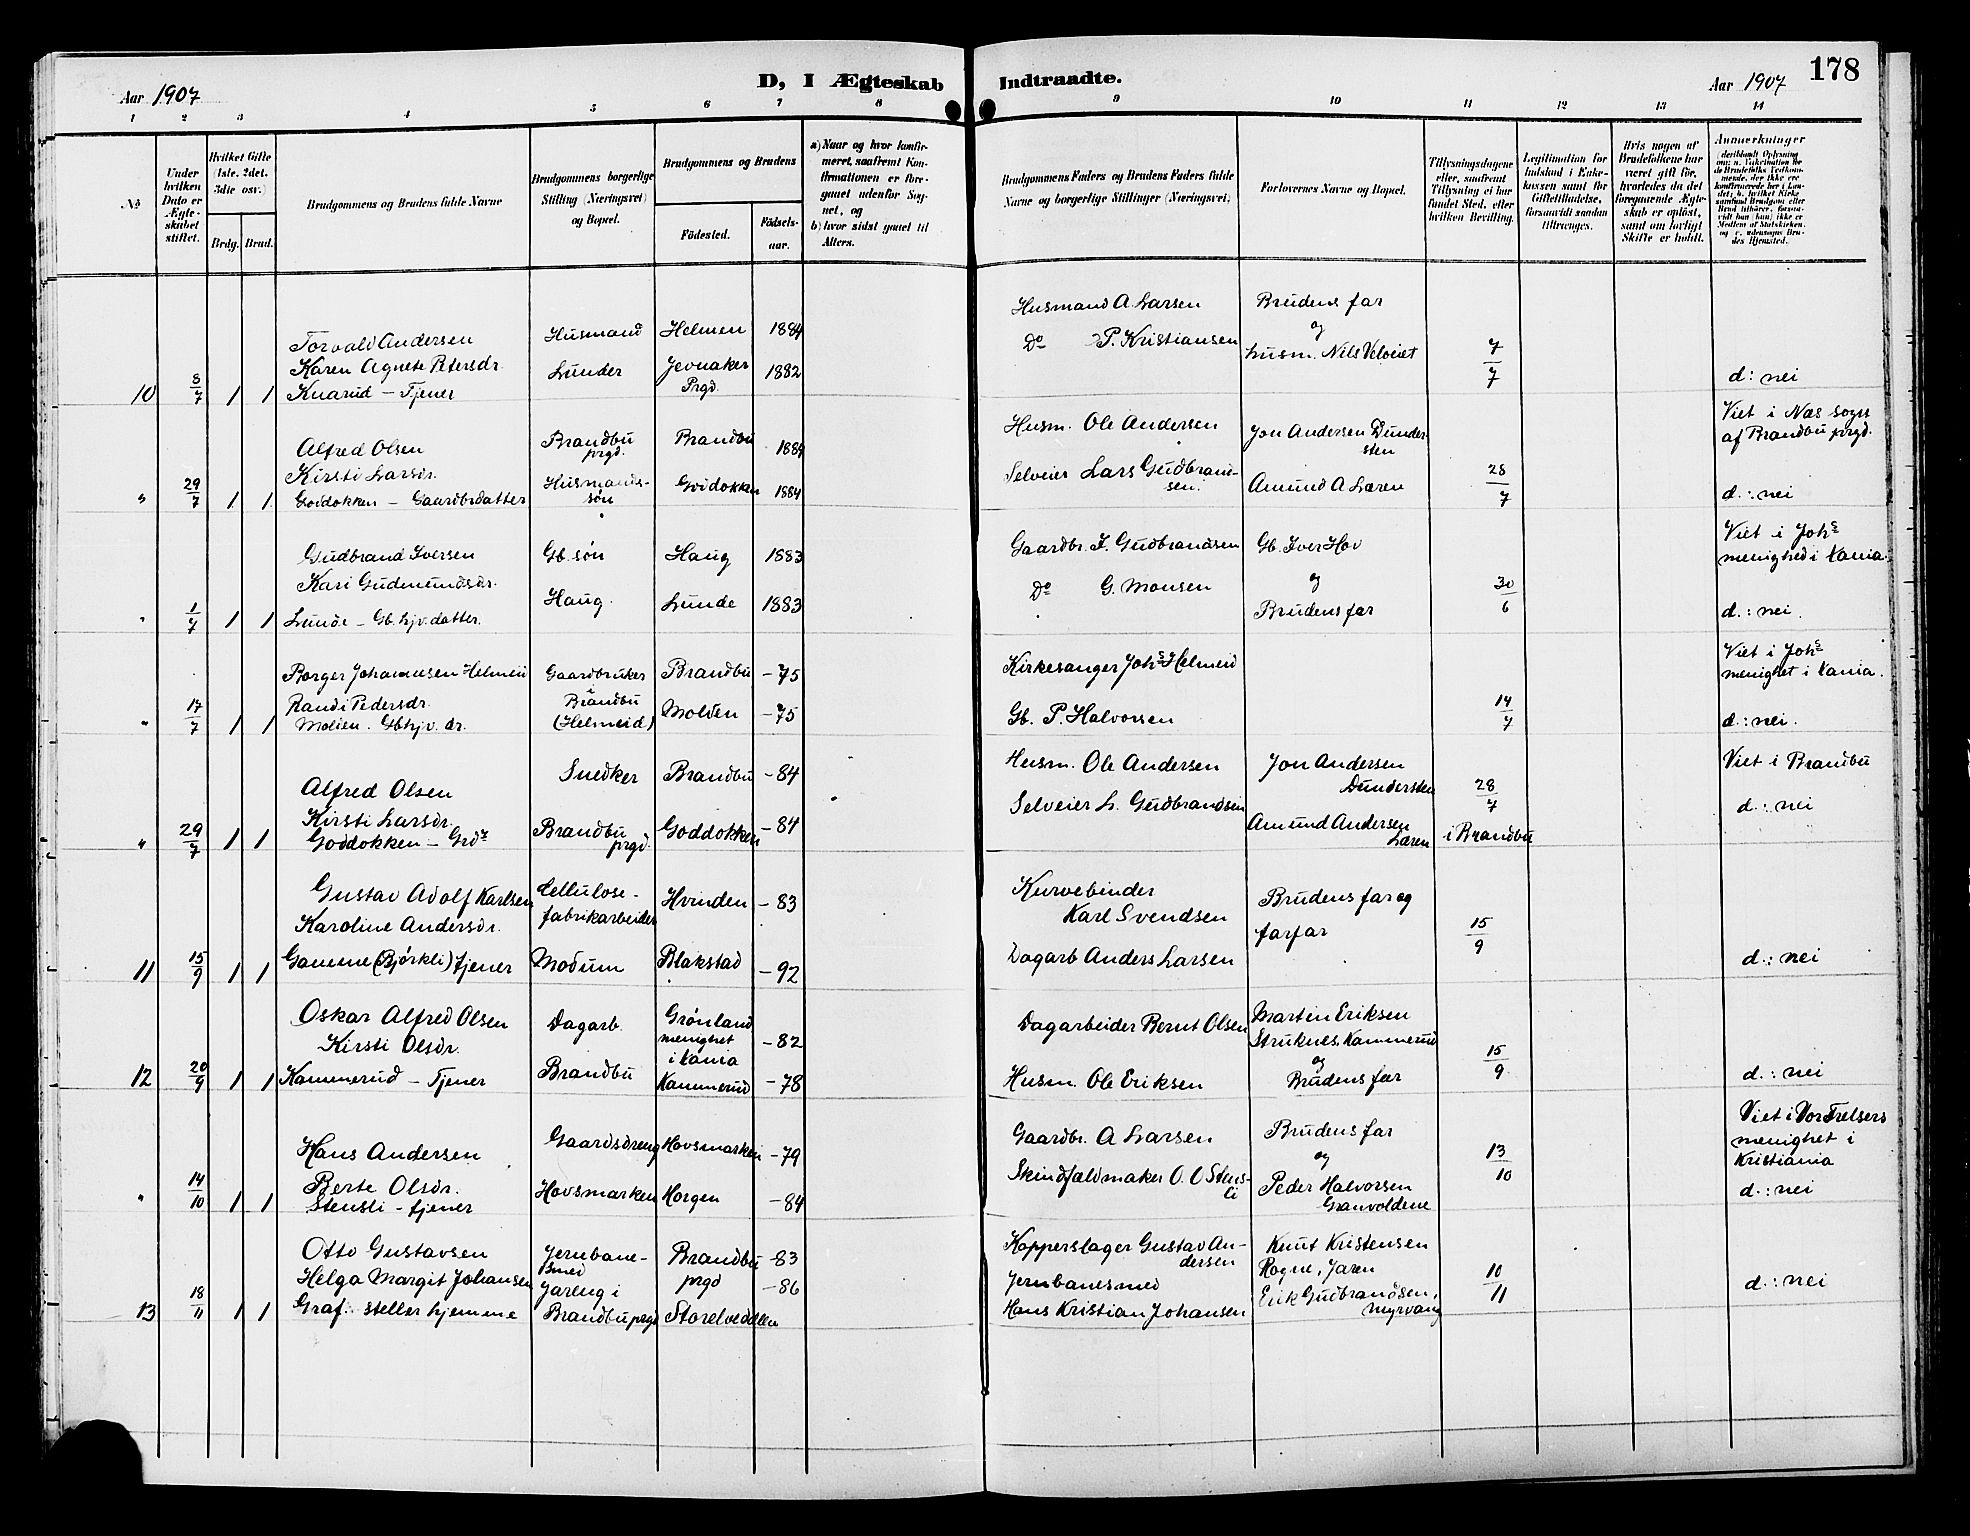 178
D, I Ægteskab Indtraadte.
Aar 1907
Aar 1907
1 2 3 4 5 6 7 8 9 10 11 12 13 14
No
Under hvilken Dato er Ægteskabet stiftet.
Hvilket Gifte (1ste, 2det, 3die osv.)
Brdg. Brud.
Brudgommens og Brudens fulde Navne
Brudgommens borgerlige Stilling (Næringsvei) og Bopæl.
Brudgommens og Brudens
Födested. Födselsaar.
a) Naar og hvor konfirmeret, saafremt Konfirmationen er foregaaet udenfor Sognet, og
b) hvor sidst gaaet til Alters.
Brudgommens Faders og Brudens Faders fulde Navne og borgerlige Stillinger (Næringsvei.)
Forlovernes Navne og Bopæl.
Tillysningsdagene eller, saafremt Tillysning ei har fundet Sted, efter hvilken Bevilling.
Legitimation for Indskud i Enkekassen samt for Giftetilladelse, forsaavidt saadan tiltrænges.
Hvis nogen af Brudefolkene har været gift för, hvorledes da det foregaaende Ægteskab er oplöst, samt om lovligt Skifte er holdt.
Anmerkninger
10 8/7 1 1
Torvald Andersen
Karen Agnete Petersdr.
Knarud - Tjener
Husmand
Lunder
Helmen 1884
Jevnaker Prgd. 1882
Husmand A. Larsen
Do P. Kristiansen
Brudens far
og
Husm. Nils Velveiet
7/7
d: nei
" 29/7 1 1
Alfred Olsen
Kirsti Larsdr.
Goddokken - Gaardbrdatter
Brandbu prgd.
Husmands-søn
Brandbu 1884
Godokken 1884
Husm. Ole Andersen
Selveier Lars Gudbrand-sen.
Jon Andersen Dunder-sten
Amund A Læren
28/7
Viet i Næs sogn
af Brandbu prgd.
d.: nei
" 1/7 1 1
Gudbrand Iversen
Kari Gudmundsdr.
Lunde - Gb. hjv. datter.
Gb. søn
Haug.
Haug 1883
Lunde 1883
Gaardbr. I. Gudbrandsen
Do G. Monsen
Gb. Iver Hov
og
Brudens far
30/6
Viet i Johs
menighed i Kania.
d.: nei.
" 17/7 1 1
Borger Johannesen Helmeid
Randi Pedersdr.
Molden. Gbhjv. dr.
Gaardbruker
i
Brandbu
(Helmeid)
Brandbu - 75
Molden - 75
Kirkesanger Johs Helmeid
Gb. P. Halvorsen
14/7
Viet i Johs
menighet i Kania.
d.: nei.
" 29/7 1 1
Alfred Olsen
Kirsti Larsdr.
Goddokken - Grdr
Snedker
Brandbu prgd.
Brandbu - 84
Goddokken - 84
Husm. Ole Andersen
Selveier L. Gudbrandsen
Jon Andersen
Dundersten
Amund Andersen
Læren
28/7
i Brandbu
Viet i Brandbu
d.: nei
11 15/9 1 1
Gustav Adolf Karlsen
Karoline Andersdr.
(Bjørkli) tjener
Cellulose-
fabrikarbeider
Modum
Hvinden - 83
Blakstad - 92
Kurvebinder
Karl Svendsen
Dagarb Anders Larsen
Brudens far og
farfar
15/9
d.: nei
12 20/9 1 1
Oskar Alfred Olsen
Kirsti Olsdr.
Kammerud - Tjener
Dagarb.
Brandbu
Grønland
menighet
i Kania - 82
Kammerud - 78
Dagarbeider Bernt Olsen
Husm. Ole Eriksen
Marten Eriksen
Struknes, Kammerud
og
Brudens far
15/9
d.: nei
" 14/10 1 1
Hans Andersen
Berte Olsdr.
Stensli - tjener
Gaardsdreng
Hovsmarken
Hovsmarken - 79
Horgen - 84
Gaardbr. A Larsen
Skindfaldmaker O. O Stens-li
Brudens far
og
Peder Halvorsen
Granvoldene
13/10
Viet i Vor Frelsers
menighet i
Kristiania
d.: nei
13 18/11 1 1
Otto Gustavsen
Helga Margit Johansen
Graf: steller hjemme
Jernbane-
smed
Jareng i
Brandbu prgd
Brandbu prgd - 83
Storelvedalen - 86
Kopperslager Gustav An-dersen
Jernbanesmed
Hans Kristian Johansen
Knut Kristensen
Rogne, Jaren
Erik Gudbrandsen,
Myrvang
10/11
d.: nei